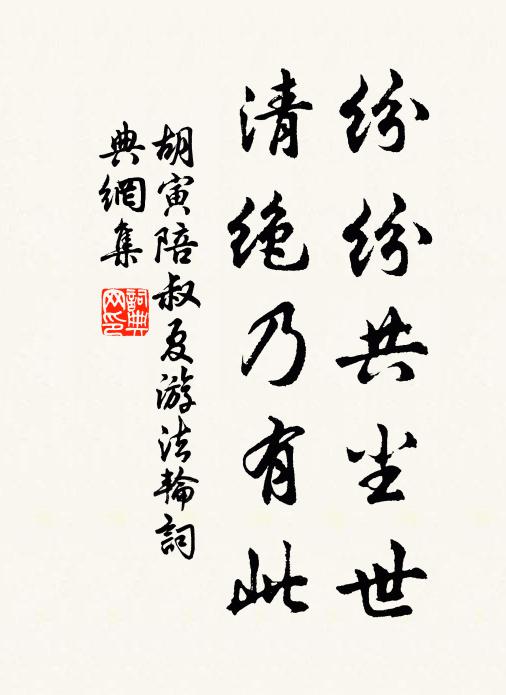 纷纷共尘世
清绝乃有此
胡寅陪叔夏游法轮詞
典網集
詞典網印